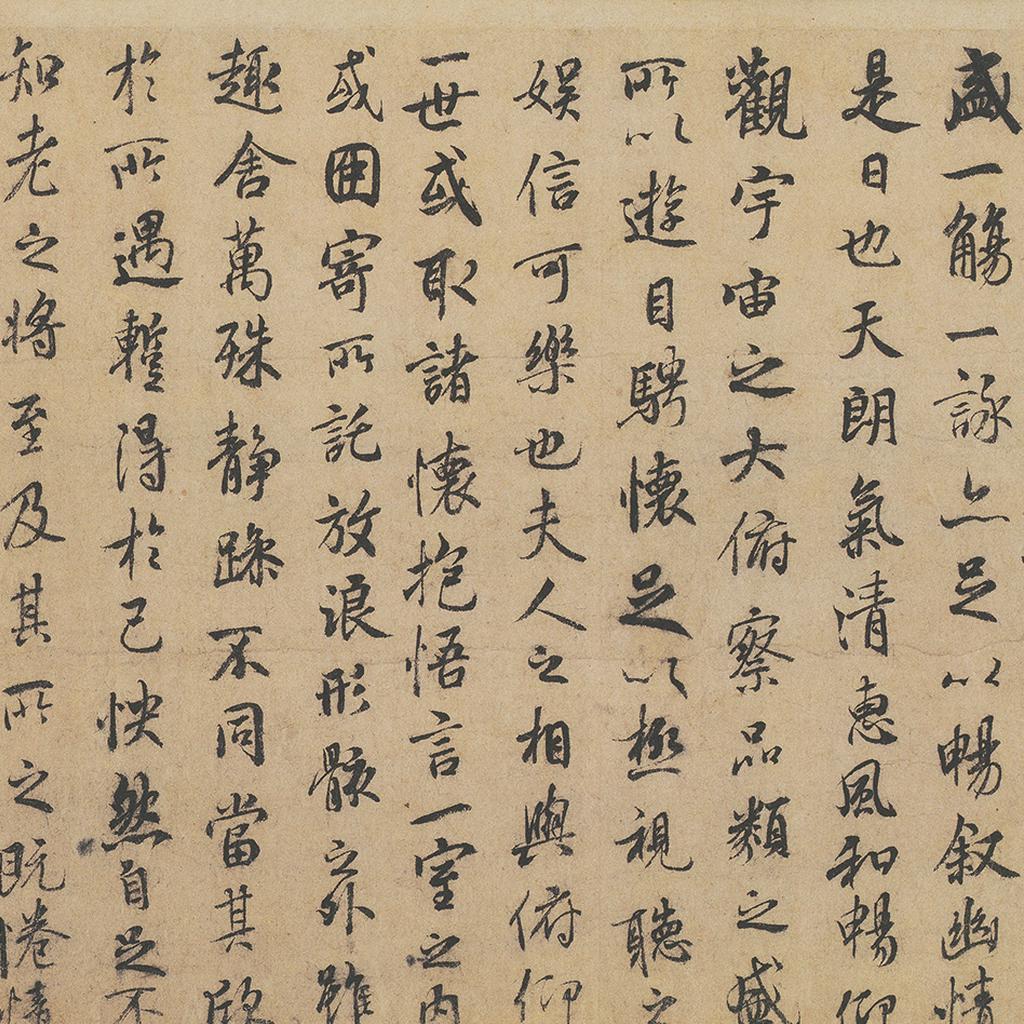 盛一觴一詠亦足以暢叙幽情
是日也天朗氣清惠風和暢仰
觀宇宙之大俯察品類之盛
所以遊目騁懷足以極視聽之
娛信可樂也夫人之相與俯仰
一世或取諸懷抱悟言一室之內
或因寄所託放浪形骸之外雖
趣舍萬殊靜躁不同當其欣
於所遇暫得於己怏然自足不
知老之將至及其所之既惓情